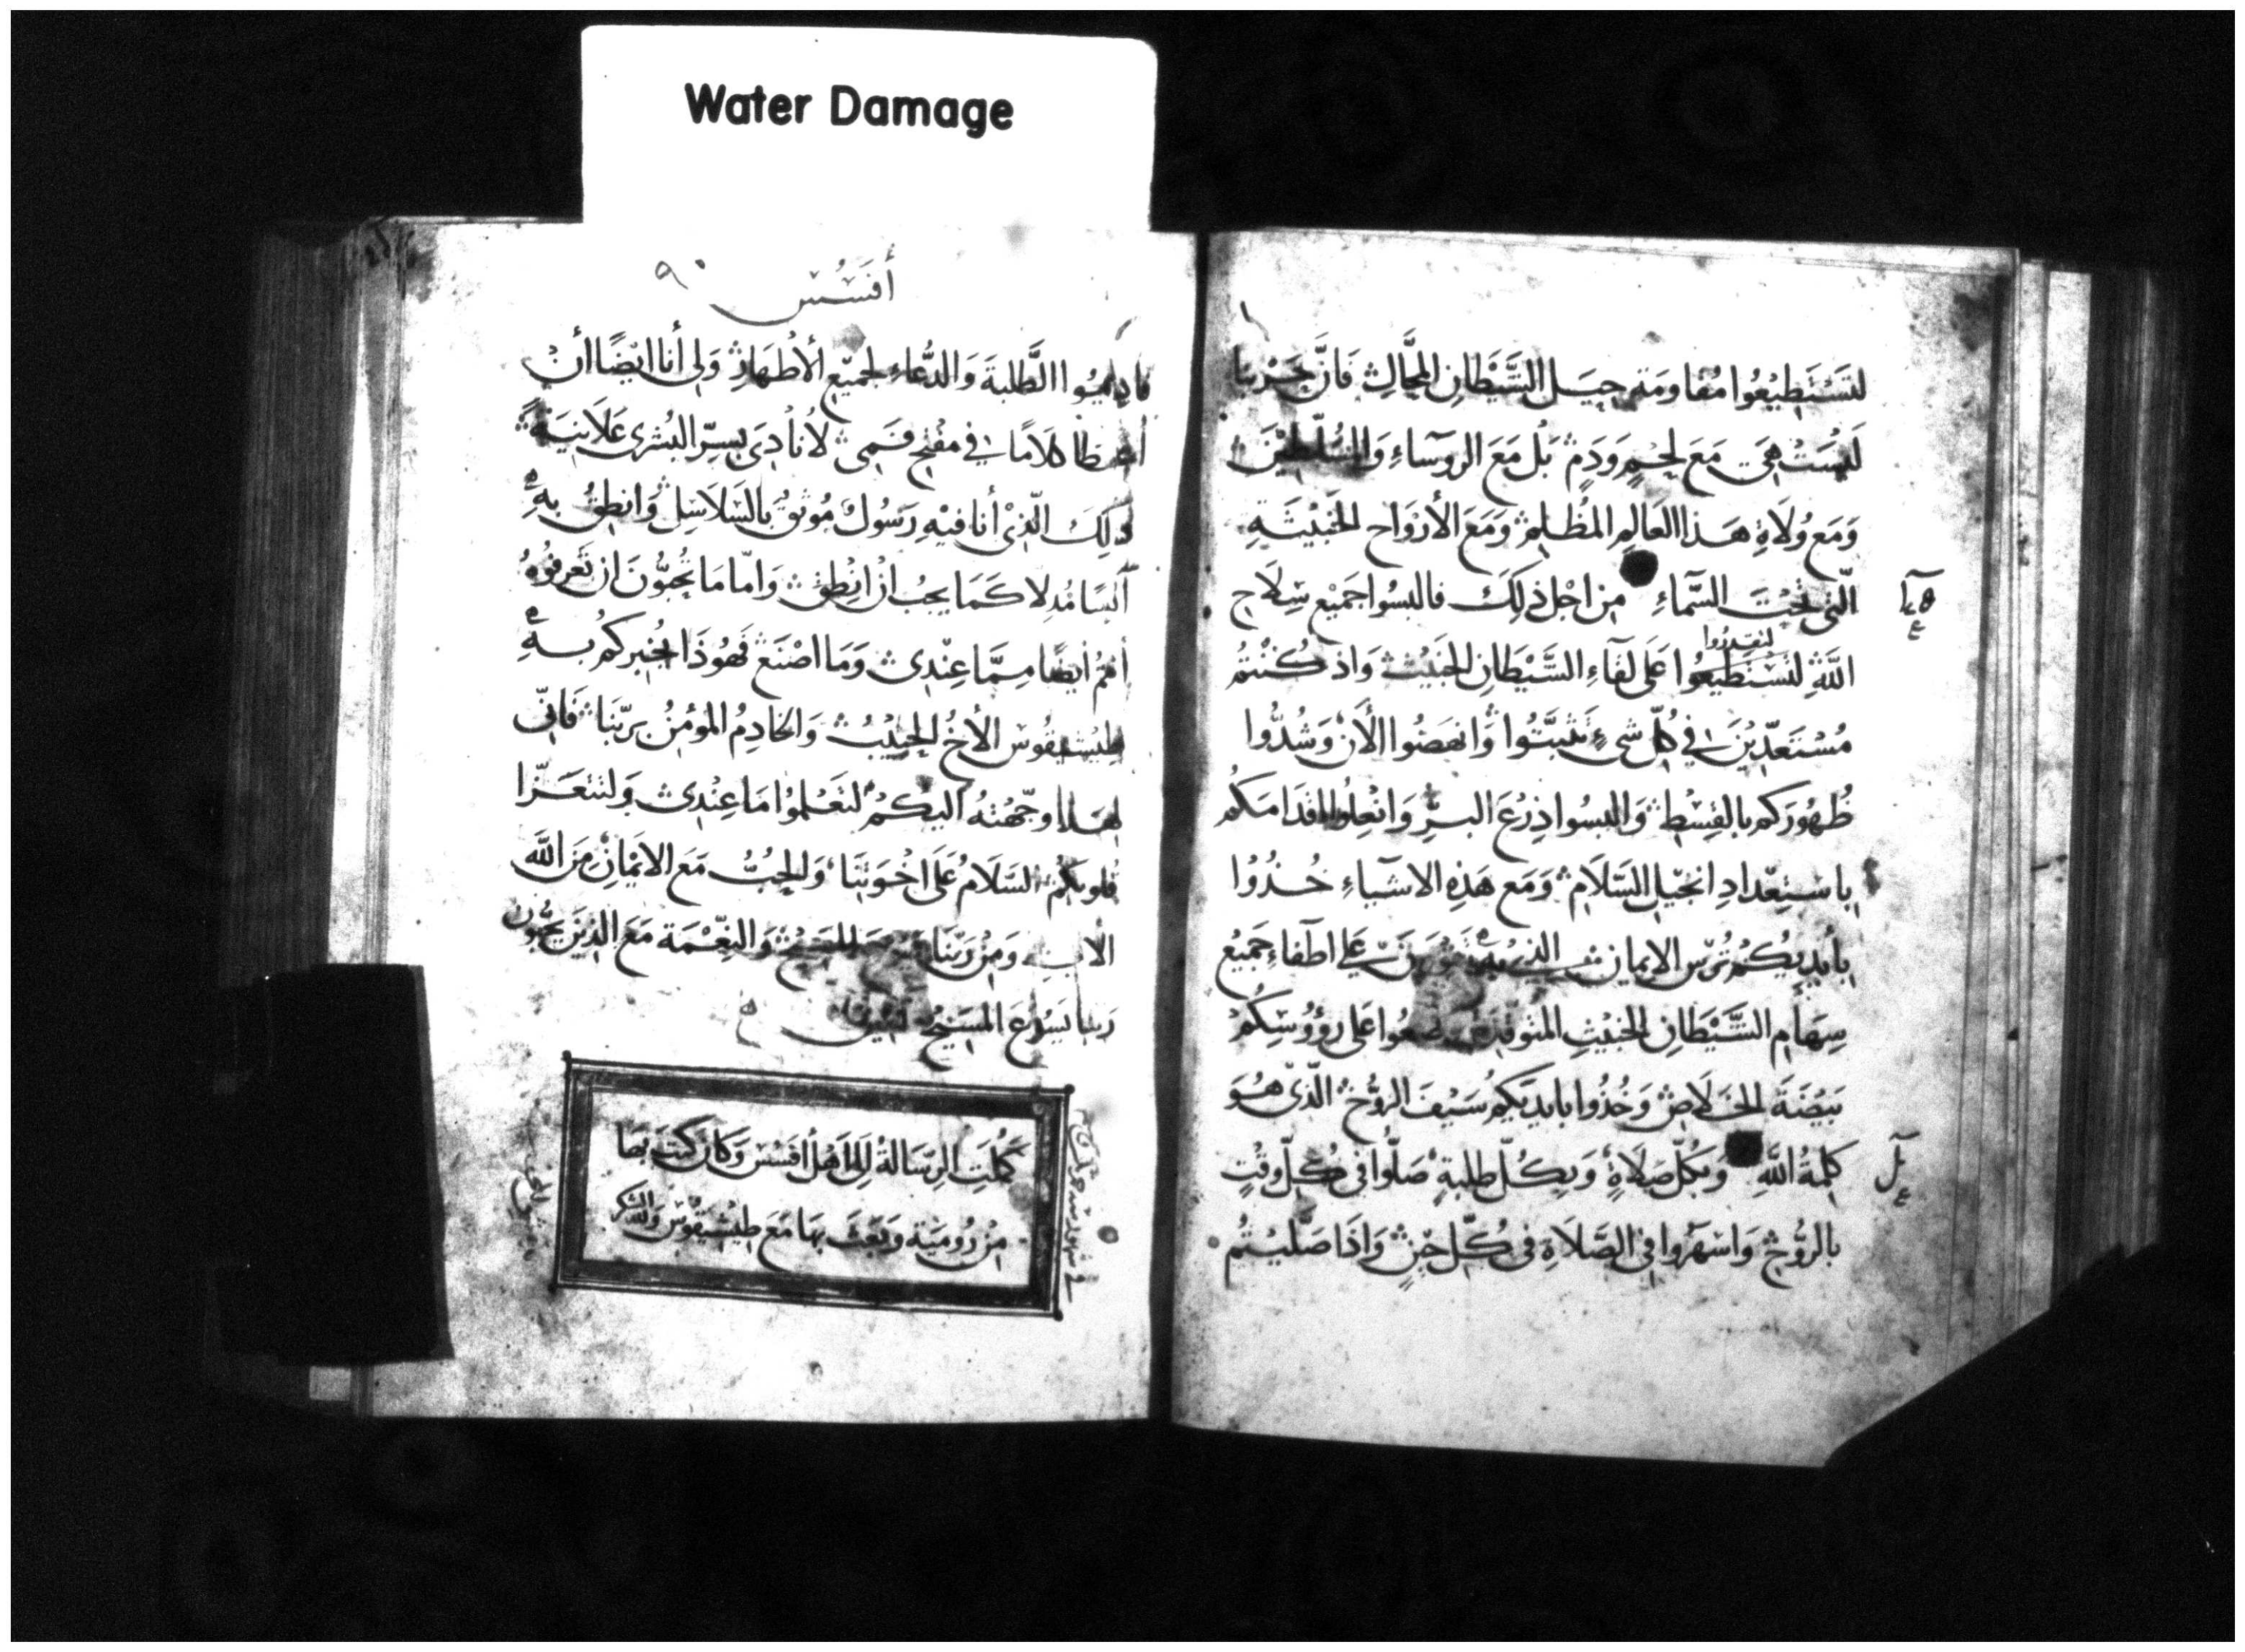 Water Damage
لتَسْتَطِيْعُوا مُقاومَة حِيَل الشَّيْطانِ المحَّالِ فَانَّ حَرْبنا
لَيْسَتْ هِيَ مَعَ لحْمٍ وَدَمٍ بَلْ مَعَ الروَسآءِ وَالسُّلّطيْنَ
وَمَع وُلَاةِ هَذا العَالمِ المُظْلم وَمَعَ الأرْوَاحِ الخَبيْثَةِ
الّتي تَحْتَ السَّمآءِ مِن اجْل ذلِكَ فالبسُوا جَميْع سِلَاحِ
لتقدروا
اللهِ لتسْتَطيعُوا عَلى لقآءِ الشَّيْطَانِ الخَبيْث وَاذ كُنْتُم
مُسْتَعدّيْنَ في كلّ شيءٍ تَثبَّتُوا وَانهَضُوا الأَنَ وَشُدُّوا
ظُهُورَكم بالقِسْطِ وَالبسُوا دِرْعَ البرِّ وَانْعِلُوا اقدَامَكم
باسْتِعْدادِ انجيْل السَّلَامِ وَمَع هَذِهِ الاشيآءِ خُذُوا
بأيديْكُمْ تُرْس الايمان الذي به تقوون عَلي اطفآءِ جَميْع
سِهَامِ الشَّيْطَانِ الخَبيْثِ المتوقدة وضعُوا عَلى رؤوُسِكُمْ
بَيْضَةَ الخَلَاصِ وَخُذُوا بايديَكم سَيْفَ الروُّحِ الّذيْ هُوَ
كلِمةُ اللهِ وَبكُلّ صَلَاةٍ وَبكُلّ طلبةٍ صَلُّوا في كُلّ وقتٍ
بالروُّحِ وَاسْهَرُوا في الصَّلَاةِ في كُلّ حيْنٍ وَاذَا صَلّيْتُم
أفَسُسْ ٩٠
فاديمُوا الطّلبةَ وَالدُّعآءِ لجميْع الأطْهَارِ وَلي أنا ايْضًا أنْ
أُعْطَا كلَامًا في مفْتَح فَمي لأنادِيَ بسِرّ البُشرى عَلَانيَةً
ذلِكَ الّذيْ أنا فيْهِ رَسُولٌ مُوثقٌ بالسَلَاسِلِ وَانطِقُ بهِ
آنسًا مُدِلا كَمَا يجبُ ان انْطِق وَامّا مَا تُحبُّونَ ان تَعْرفُوهُ
أنتمُ أيضًا مِمَّا عِنْدي وَمَا اصْنَع فَهُوذَا يُخبركُم بهِ
طيْشيقُوس الأخُ الحبيْبُ وَالخادِمُ المؤمِنُ بربّنَا فَانّي
لهذا وجّهْتهُ اليكُمْ لتَعْلموُا مَا عِنْدي وَلتتعَزّا
قلوبكُمُ السَّلَامُ عَلَى اخْوَتِنَا وَالحبُّ مَع الايْمَانِ مِنَ اللهِ
الاب وَمِنْ رَبّنَا يسوع المسيح وَالنِّعْمَة مَعَ الذيْنَ يحبُّونَ
رَبنا يَسُوْعَ المسَيْحَ امين
كمُلَتِ الرسَالةُ الى اهْل أفَسُسْ وَكان كَتَبَ بهَا
مِنْ رُوميَة وَبَعَثَ بهَا مَعَ طيْشيقُوس وَلله الشكر